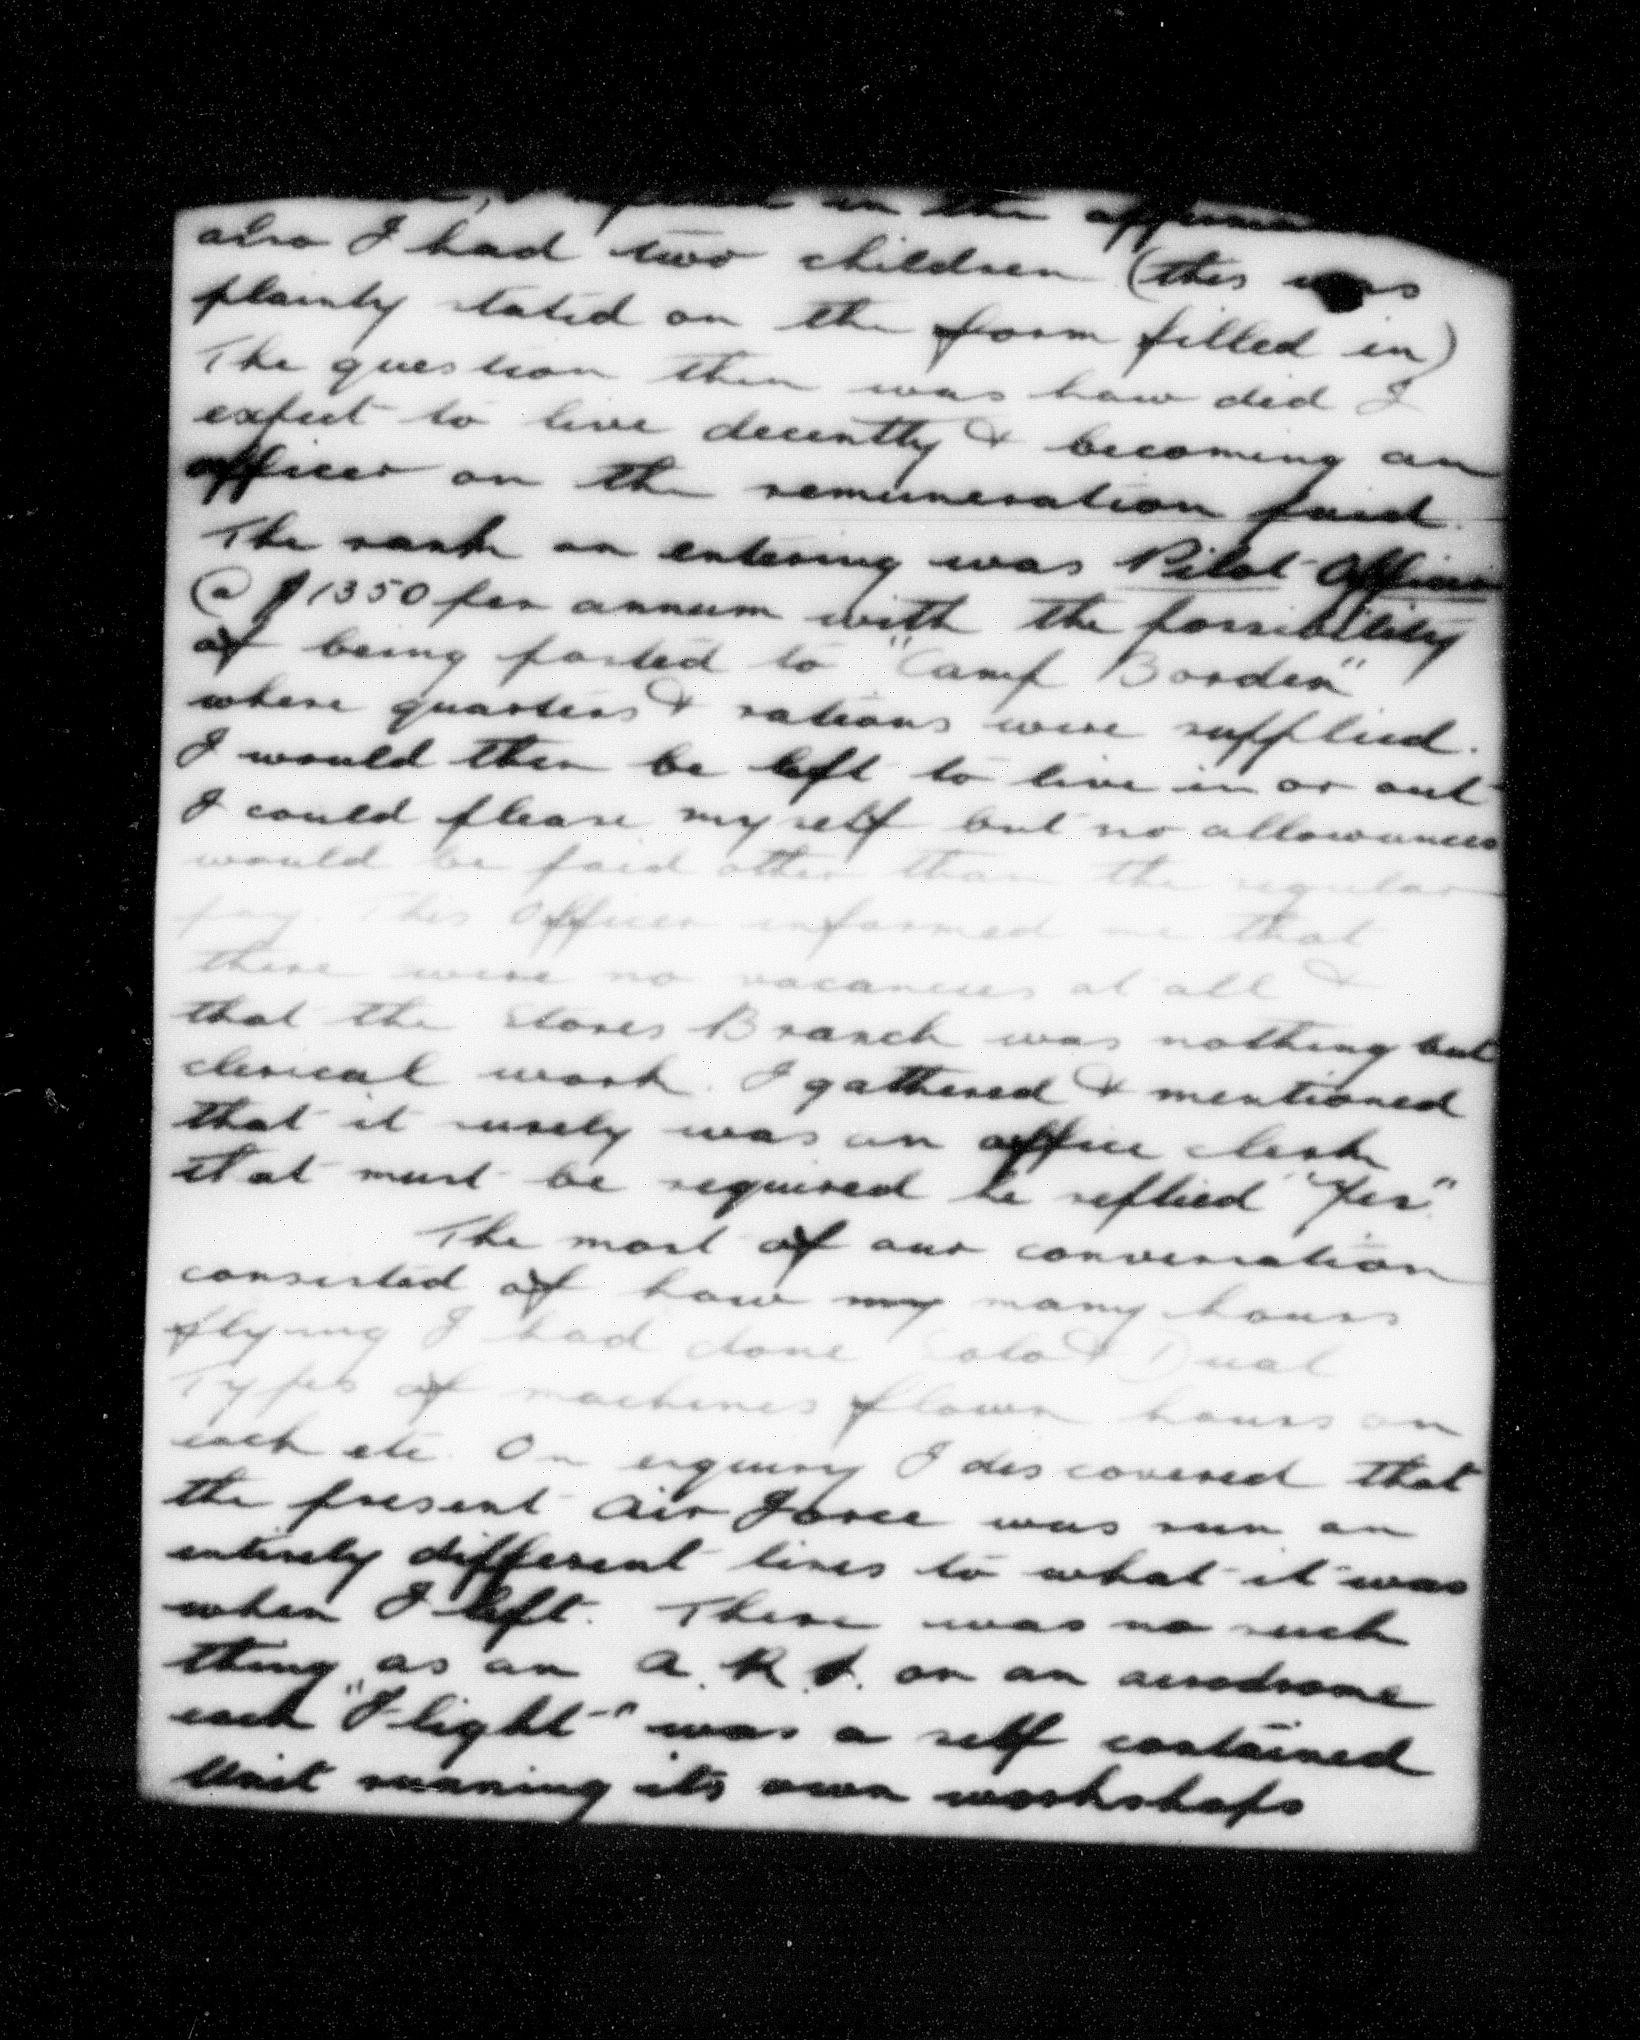 in the
also I had two children (this was
plainly stated on the form filled in)
The question then was how did I
expect to live decently & becoming an
officer on the remuneration paid.
The rank on entering was Pilot Officer
@ $1350 per annum with the possibility
of being posted to "Camp Borden"
where quarters & rations were supplied.
I would then be left to live in or out
I could please myself but no allowances
would be paid other than the regular
pay. This Officer informed me that
there were no vacancies at all &
that the Stores Branch was nothing but
clerical work. I gathered & mentioned
that it surely was an office clerk
that must be required he replied "Yes".
The most of our conversation
consisted of how my many hours
flying I had done Solo & Dual
Types of machines flown hours on
each etc. On enquiry I discovered that
the present Air Force was run on
entirely different lines to what it was
when I left. There was no such
thing as an A.R.S. on an aerodrome
each "Flight" was a self contained
Unit running its own workshops